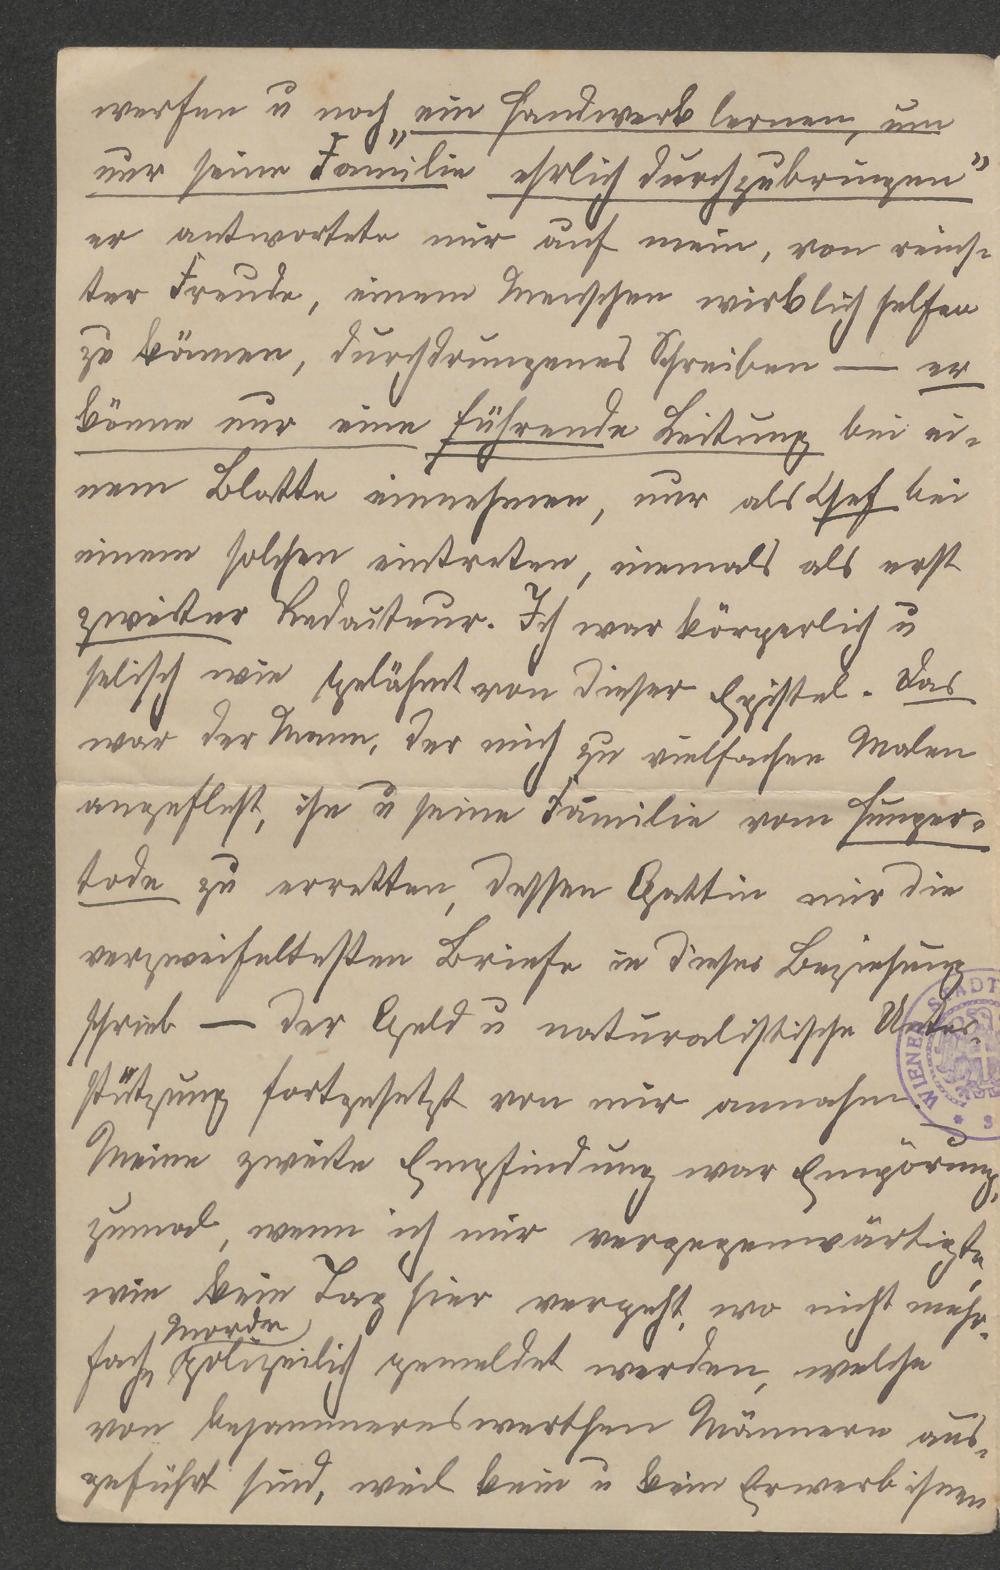 werfen u noch „ein Handwerk lernen, um
nur seine Familie ehrlich durchzubringen"
er antwortete mir auf mein, von reins-
ter Freude, einem Menschen wirklich helfen
zu können, durchdrungenes Schreiben — er
könne nur eine führende Leitung bei ei-
nem Blatte einnehmen, nur als Chef bei
einem solchen eintreten, niemals als erst
zweiter Redacteur. Ich war körperlich u
selisch wie gelähmt von dieser Epistel. Das
war der Mann, der mich zu vielfachen Malen
angefleht, ihn u seine Familie vom Hunger-
tode zu erretten, dessen Gattin mir die
verzweifeltesten Briefe in dieser Beziehung
schrieb — der Geld u naturalistische Unter-
stützung fortgesetzt von mir annahm.
Meine zweite Empfindung war Empörung,
zumal, wenn ich mir vergegenwärtigte,
wie kein Tag hier vergeht, wo nicht mehr-
fach Morde polizeilich gemeldet werden, welche
von bejammernswerthen Männern aus-
geführt sind, weil kein u kein Erwerb ihnen
WIENER STADT